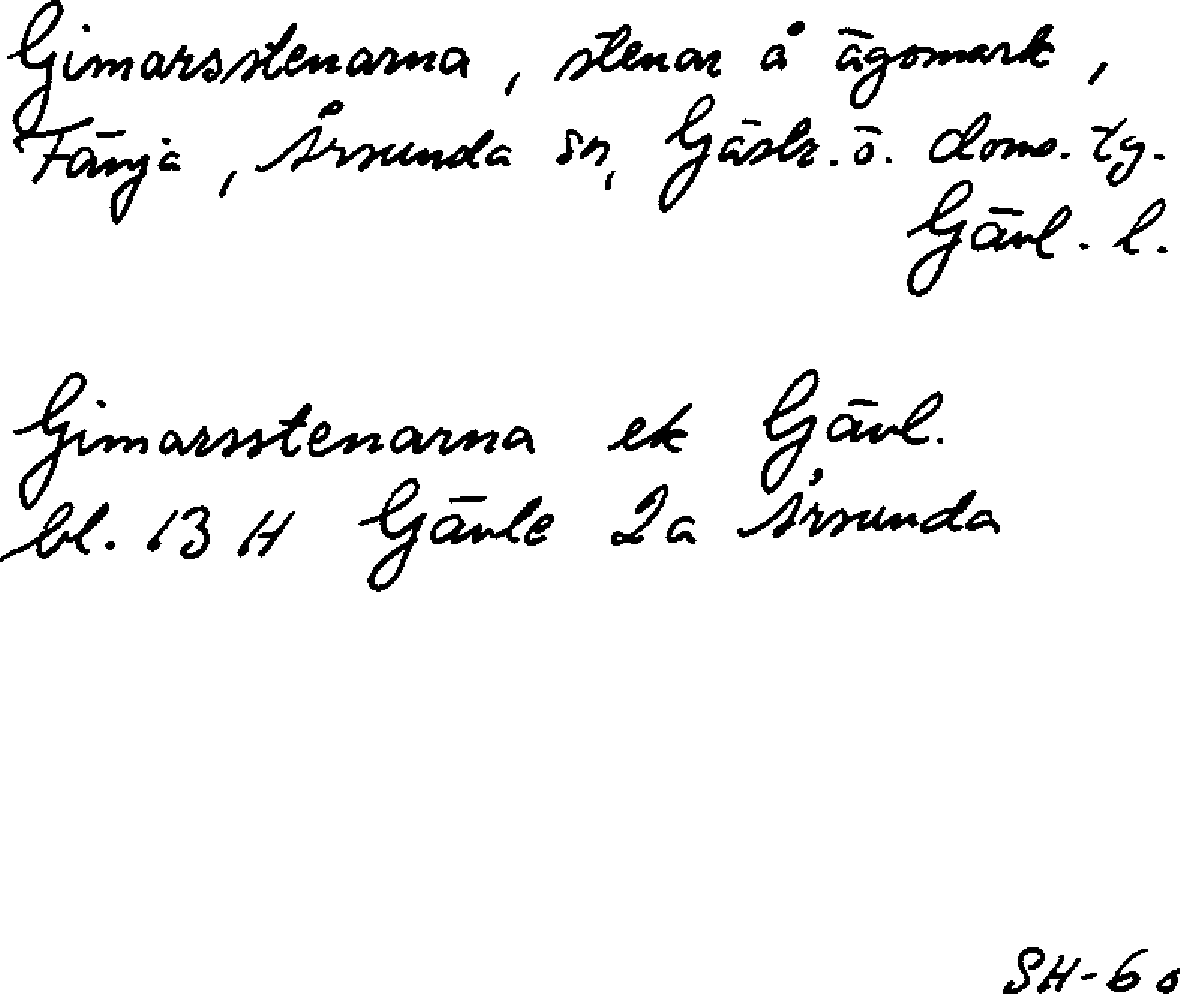 Gimarsstenarna, stenar å ägomark,
Fänja, Årsunda sn, Gästr. ö. doms. tg.
Gävl. l.
Gimarsstenarna ek Gävl.
bl. 13 H Gävle 2a Årsunda
SH-60